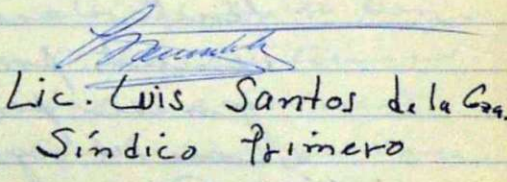 Lic. Luis Santos de la Gza.
Síndico Primero